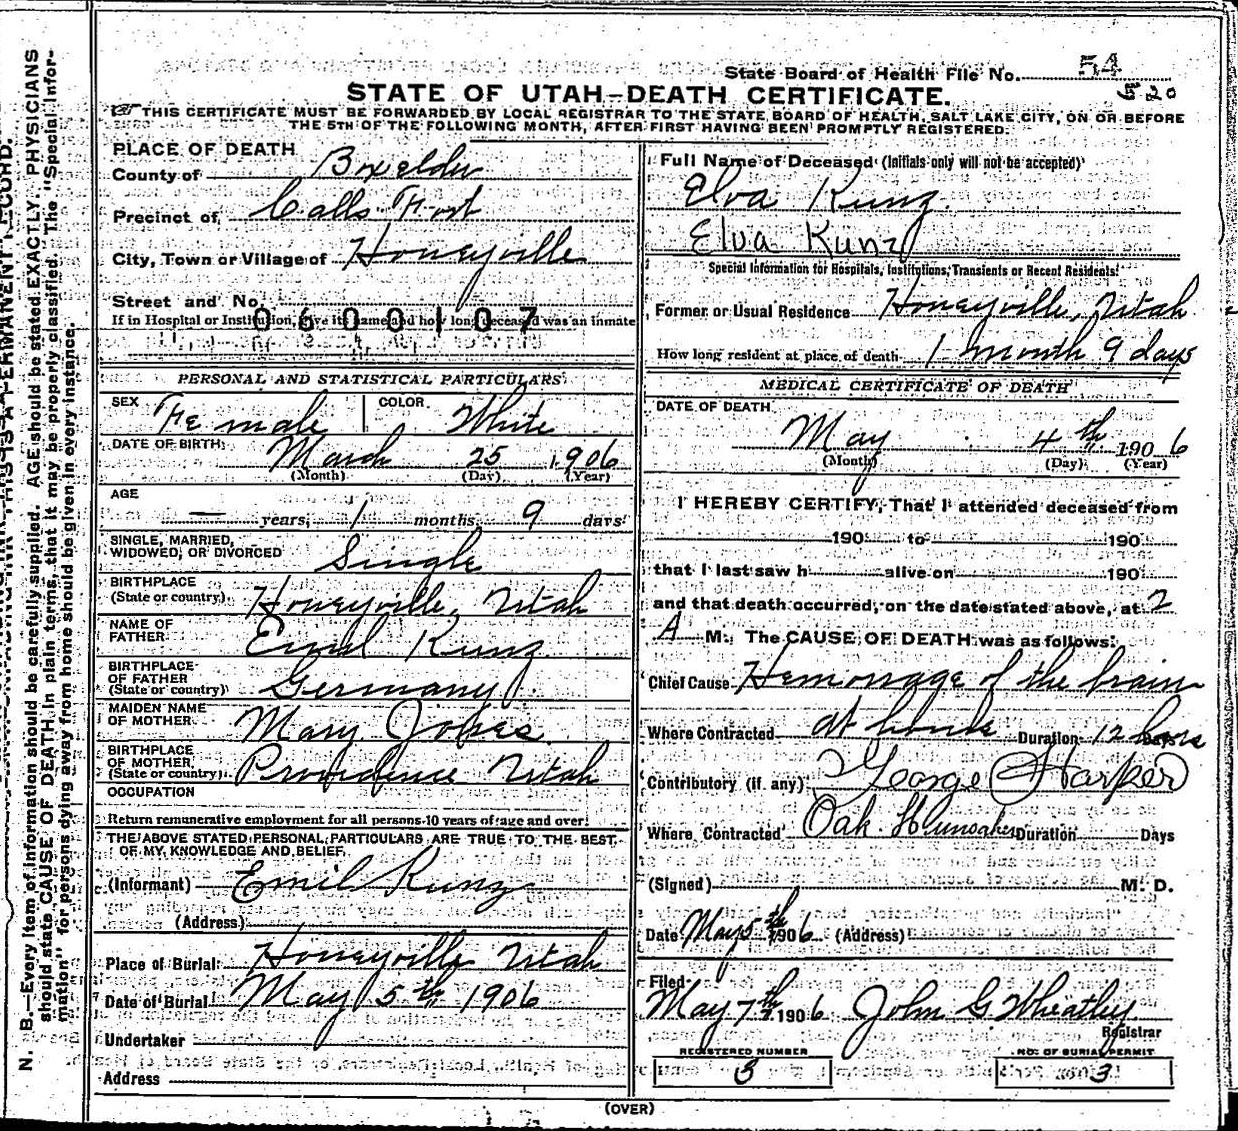 N. B.—Every item of information should be carefully supplied. AGE should be stated EXACTLY. PHYSICIANS
should state CAUSE OF DEATH in plain terms, that it may be properly classified. The "Special Infor-
mation" for persons dying away from home should be given in every instance.
State Board of Health File No. 54
520
STATE OF UTAH—DEATH CERTIFICATE.
THIS CERTIFICATE MUST BE FORWARDED BY LOCAL REGISTRAR TO THE STATE BOARD OF HEALTH, SALT LAKE CITY, ON OR BEFORE
THE 5TH OF THE FOLLOWING MONTH, AFTER FIRST HAVING BEEN PROMPTLY REGISTERED.
PLACE OF DEATH
County of Boxelder
Precinct of Calls Fort
City, Town or Village of Honeyville
Street and No.
If in Hospital or Institution, give its name and how long deceased was an inmate
0600107
PERSONAL AND STATISTICAL PARTICULARS
SEX Female COLOR White
DATE OF BIRTH March 25 1906
(Month) (Day) (Year)
AGE
— years, 1 months, 9 days
SINGLE, MARRIED,
WIDOWED, OR DIVORCED Single
BIRTHPLACE
(State or country) Honeyville, Utah
NAME OF
FATHER Emil Kunz
BIRTHPLACE
OF FATHER
(State or country) Germany
MAIDEN NAME
OF MOTHER Mary
BIRTHPLACE
OF MOTHER
(State or country) Providence Utah
OCCUPATION
Return remunerative employment for all persons 10 years of age and over
THE ABOVE STATED PERSONAL PARTICULARS ARE TRUE TO THE BEST
OF MY KNOWLEDGE AND BELIEF
(Informant) Emil Kunz
(Address)
Place of Burial Honeyville Utah
Date of Burial May 5th 1906
Undertaker
Address
Full Name of Deceased (Initials only will not be accepted)
Elva Kunz
Elva Kunz
Special Information for Hospitals, Institutions, Transients or Recent Residents
Former or Usual Residence Honeyville, Utah
How long resident at place of death 1 month 9 days
MEDICAL CERTIFICATE OF DEATH
DATE OF DEATH
May 4th 1906
(Month) (Day) (Year)
I HEREBY CERTIFY, That I attended deceased from
190 to 190
that I last saw h alive on 190
and that death occurred, on the date stated above, at 2
A M. The CAUSE OF DEATH was as follows:
Chief Cause Hemorrage of the brain
Where Contracted at home Duration 12 hours Days
Contributory (if any) George Harper
Where Contracted Oak Duration Days
(Signed) M. D.
Date May 5th 1906 (Address)
Filed
May 7th 1906 John G Wheatley
Registrar
REGISTERED NUMBER NO. OF BURIAL PERMIT
3 3
(OVER)